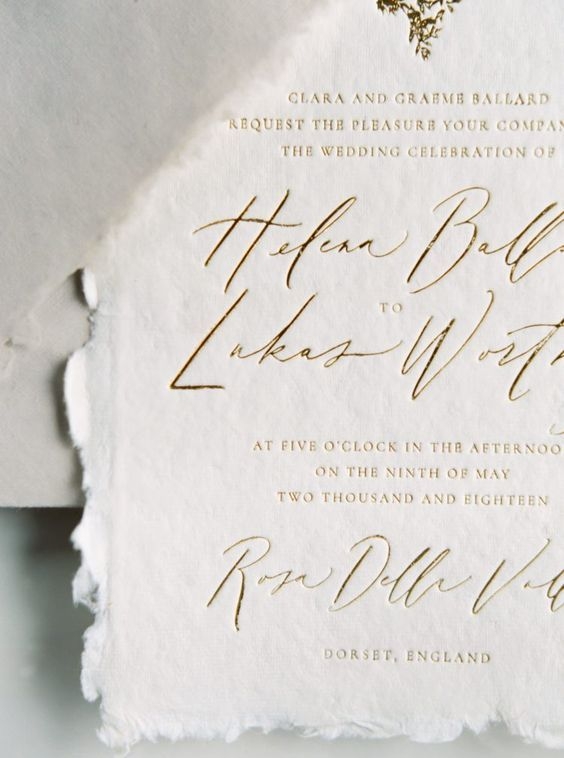 CLARA AND GRAEME BALLARD
REQUEST THE PLEASURE YOUR COMPAN
THE WEDDING CELEBRATION OF
Helena Balla
TO
Lukas Worth
AT FIVE O'CLOCK IN THE AFTERNOO
ON THE NINTH OF MAY
TWO THOUSAND AND EIGHTEEN
Rosa Delle Vall
DORSET, ENGLAND